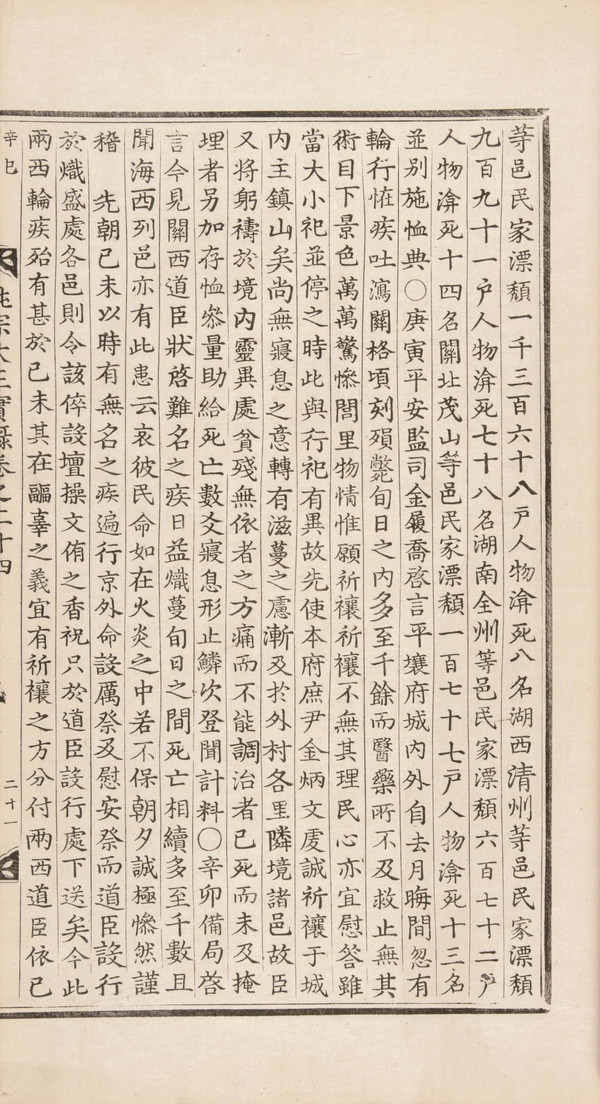 等邑民家漂頹一千三百六十八戶人物渰死八名湖西清州等邑民家漂頹
九百九十一戶人物渰死七十八名湖南全州等邑民家漂頹六百七十二戶
人物渰死十四名關北茂山等邑民家漂頹一百七十七戶人物渰死十三名
並別施恤典〇庚寅平安監司金履喬啓言平壤府城內外自去月晦間忽有
輪行怪疾吐瀉關格頃刻殞斃旬日之內多至千餘而醫藥所不及救止無其
術目下景色萬萬驚慘閭里物情惟願祈禳祈禳不無其理民心亦宜慰答雖
當大小祀並停之時此與行祀有異故先使本府庶尹金炳文虔誠祈禳于城
內主鎮山矣尚無寢息之意轉有滋蔓之慮漸及於外村各里隣境諸邑故臣
又將躬禱於境內靈異處貧殘無依者之方痛而不能調治者已死而未及掩
埋者另加存恤參量助給死亡數爻寢息形止鱗次登聞計料〇辛卯備局啓
言今見關西道臣狀啓難名之疾日益熾蔓旬日之間死亡相續多至千數且
聞海西列邑亦有此患云哀彼民命如在火炎之中若不保朝夕誠極慘然謹
稽 先朝己未以時有無名之疾遍行京外命設厲祭及慰安祭而道臣設行
於熾盛處各邑則令該倅設壇操文侑之香祝只於道臣設行處下送矣今此
兩西輪疾殆有甚於己未其在臨辜之義宜有祈禳之方分付兩西道臣依已
辛巳 純宗大王實錄卷之二十四 二十一